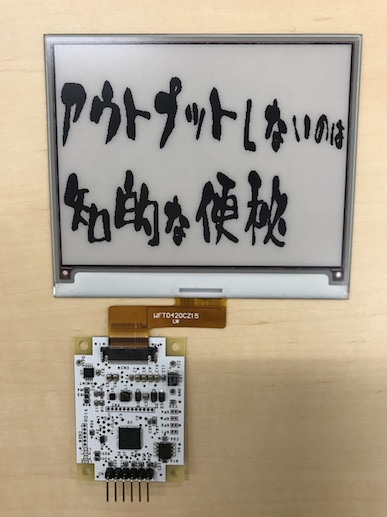 アウトプットしないのは
知的な便秘
WFT0420CZ15
LW